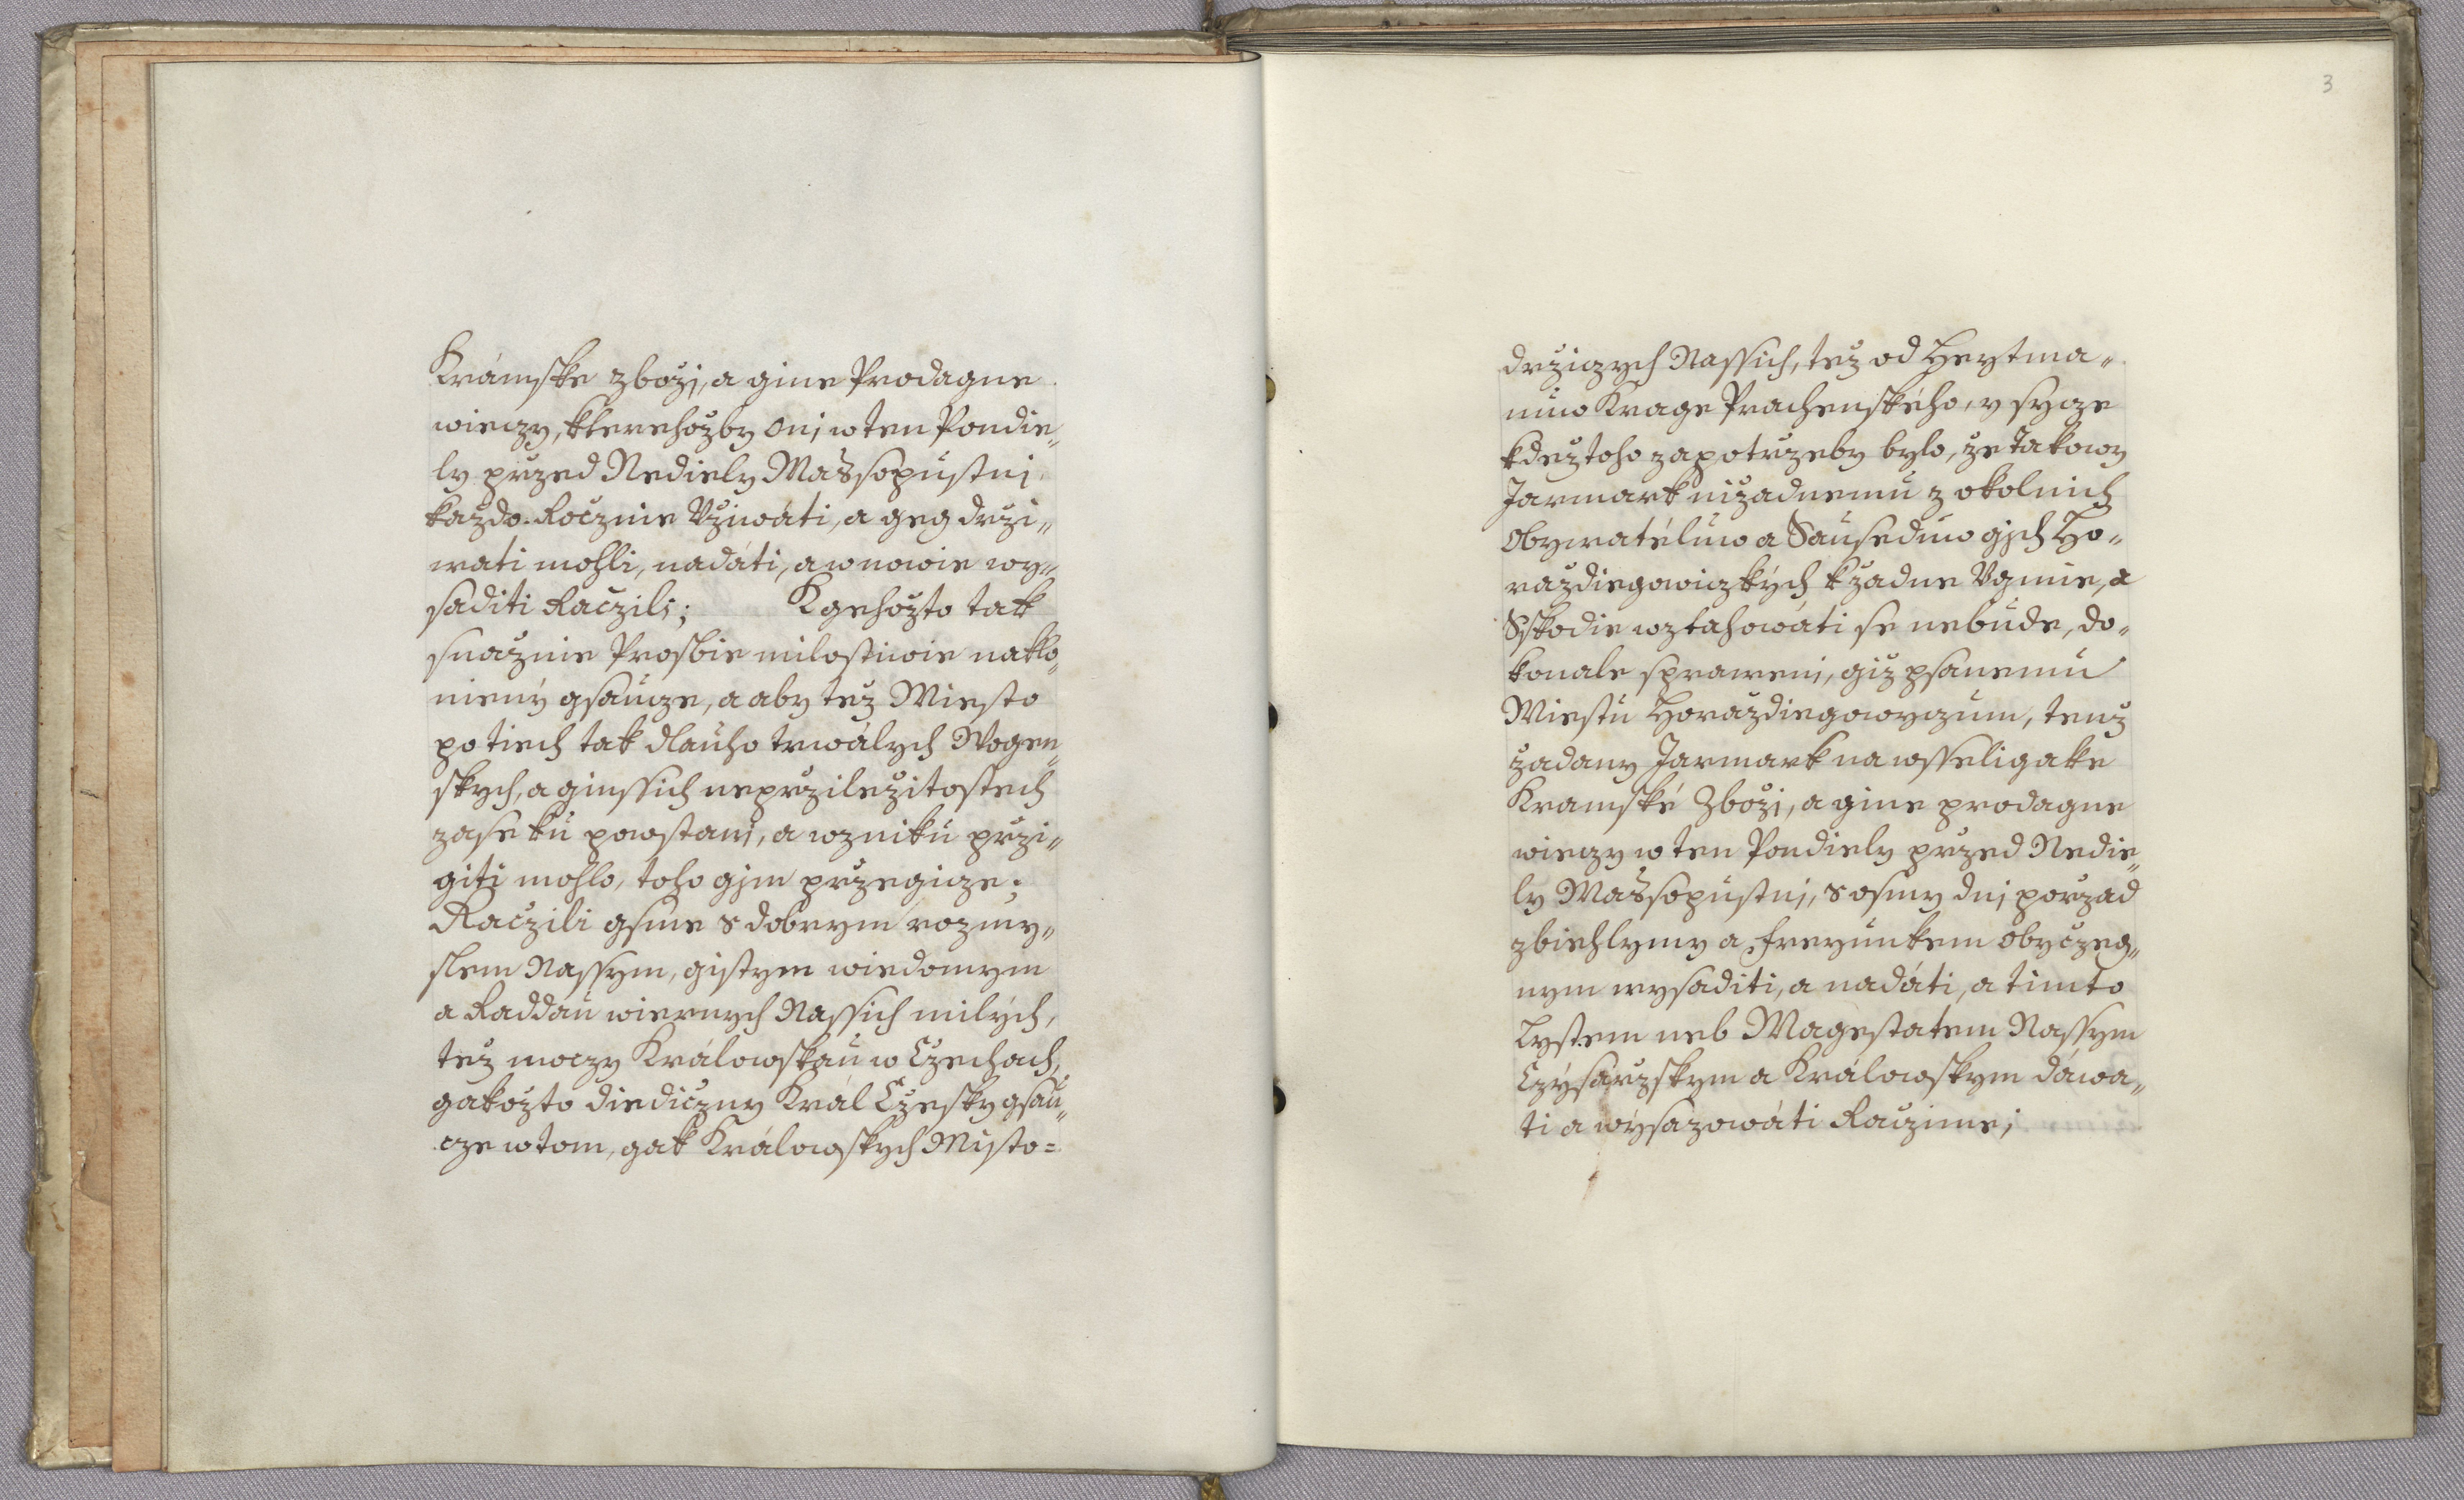 Krámske zbožj, a gine Prodagne
wieczy, kterehožby onj w ten Pondie„
ly przed Nediely Massopustnj
každo Rocznie Vžiwáti, a geg drži„
wati mohli, nadáti, a w nowie wy„
saditi Raczili; K gehožto tak
snažnie Prosbie milostiwie naklo„
nieny gsaucze, a aby též Miesto
po tiech tak dlauho trwálych Wogen„
skych, a ginssich neprziležitostech
zase ku powstanj, a wzniku przi„
gíti mohlo, toho gim przegicze;
Raczili gsme s dobrym rozmy„
slem Nassym, gistym wiedomym
a Raddau wiernych Nassich milých,
též moczy Králowskau w Czechach,
gakožto diediczny Král Czesky gsau„
cze w tom, gak Králowskych Misto=
3
držiczych Nassich, tez od Heytma„
nuw Krage Prachenského, y sycze
kdež toho zapotrzeby bylo, že takowy
Jarmark nižadnemu z okolnich
Obywatéluw a Sausseduw gich Ho„
raždiegowiczkých k žadne Vgmie, a
Sskodie wztahowáti se nebude, do„
konale spraweni, giz psanemu
Miestu Horaždiegowyczum, tenž
žadany Jarmark na wsseligake
Kramské Zbožj, a gine prodagne
wieczy w ten Pondiely przed Nedie„
ly Massopustnj, s osmy dnj porzad
zbiehlymy a freyunkem obyczeg„
nym wysaditi, a nadáti, a timto
Lystem neb Magestatem Nassym
Czýsarzskym a Králowskym dáwa„
ti a wysazowáti Raczime;